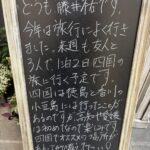 どうも藤井祐です。
今年は旅行によく行き
ました。来週も友人と
3人で1泊2日四国の
旅に行く予定です。
四国は徳島と香川の
小豆島には行ったことが
あるものですが、高知や愛媛
は初めてなので楽しみです。
四国でオススメの場所が
教えて